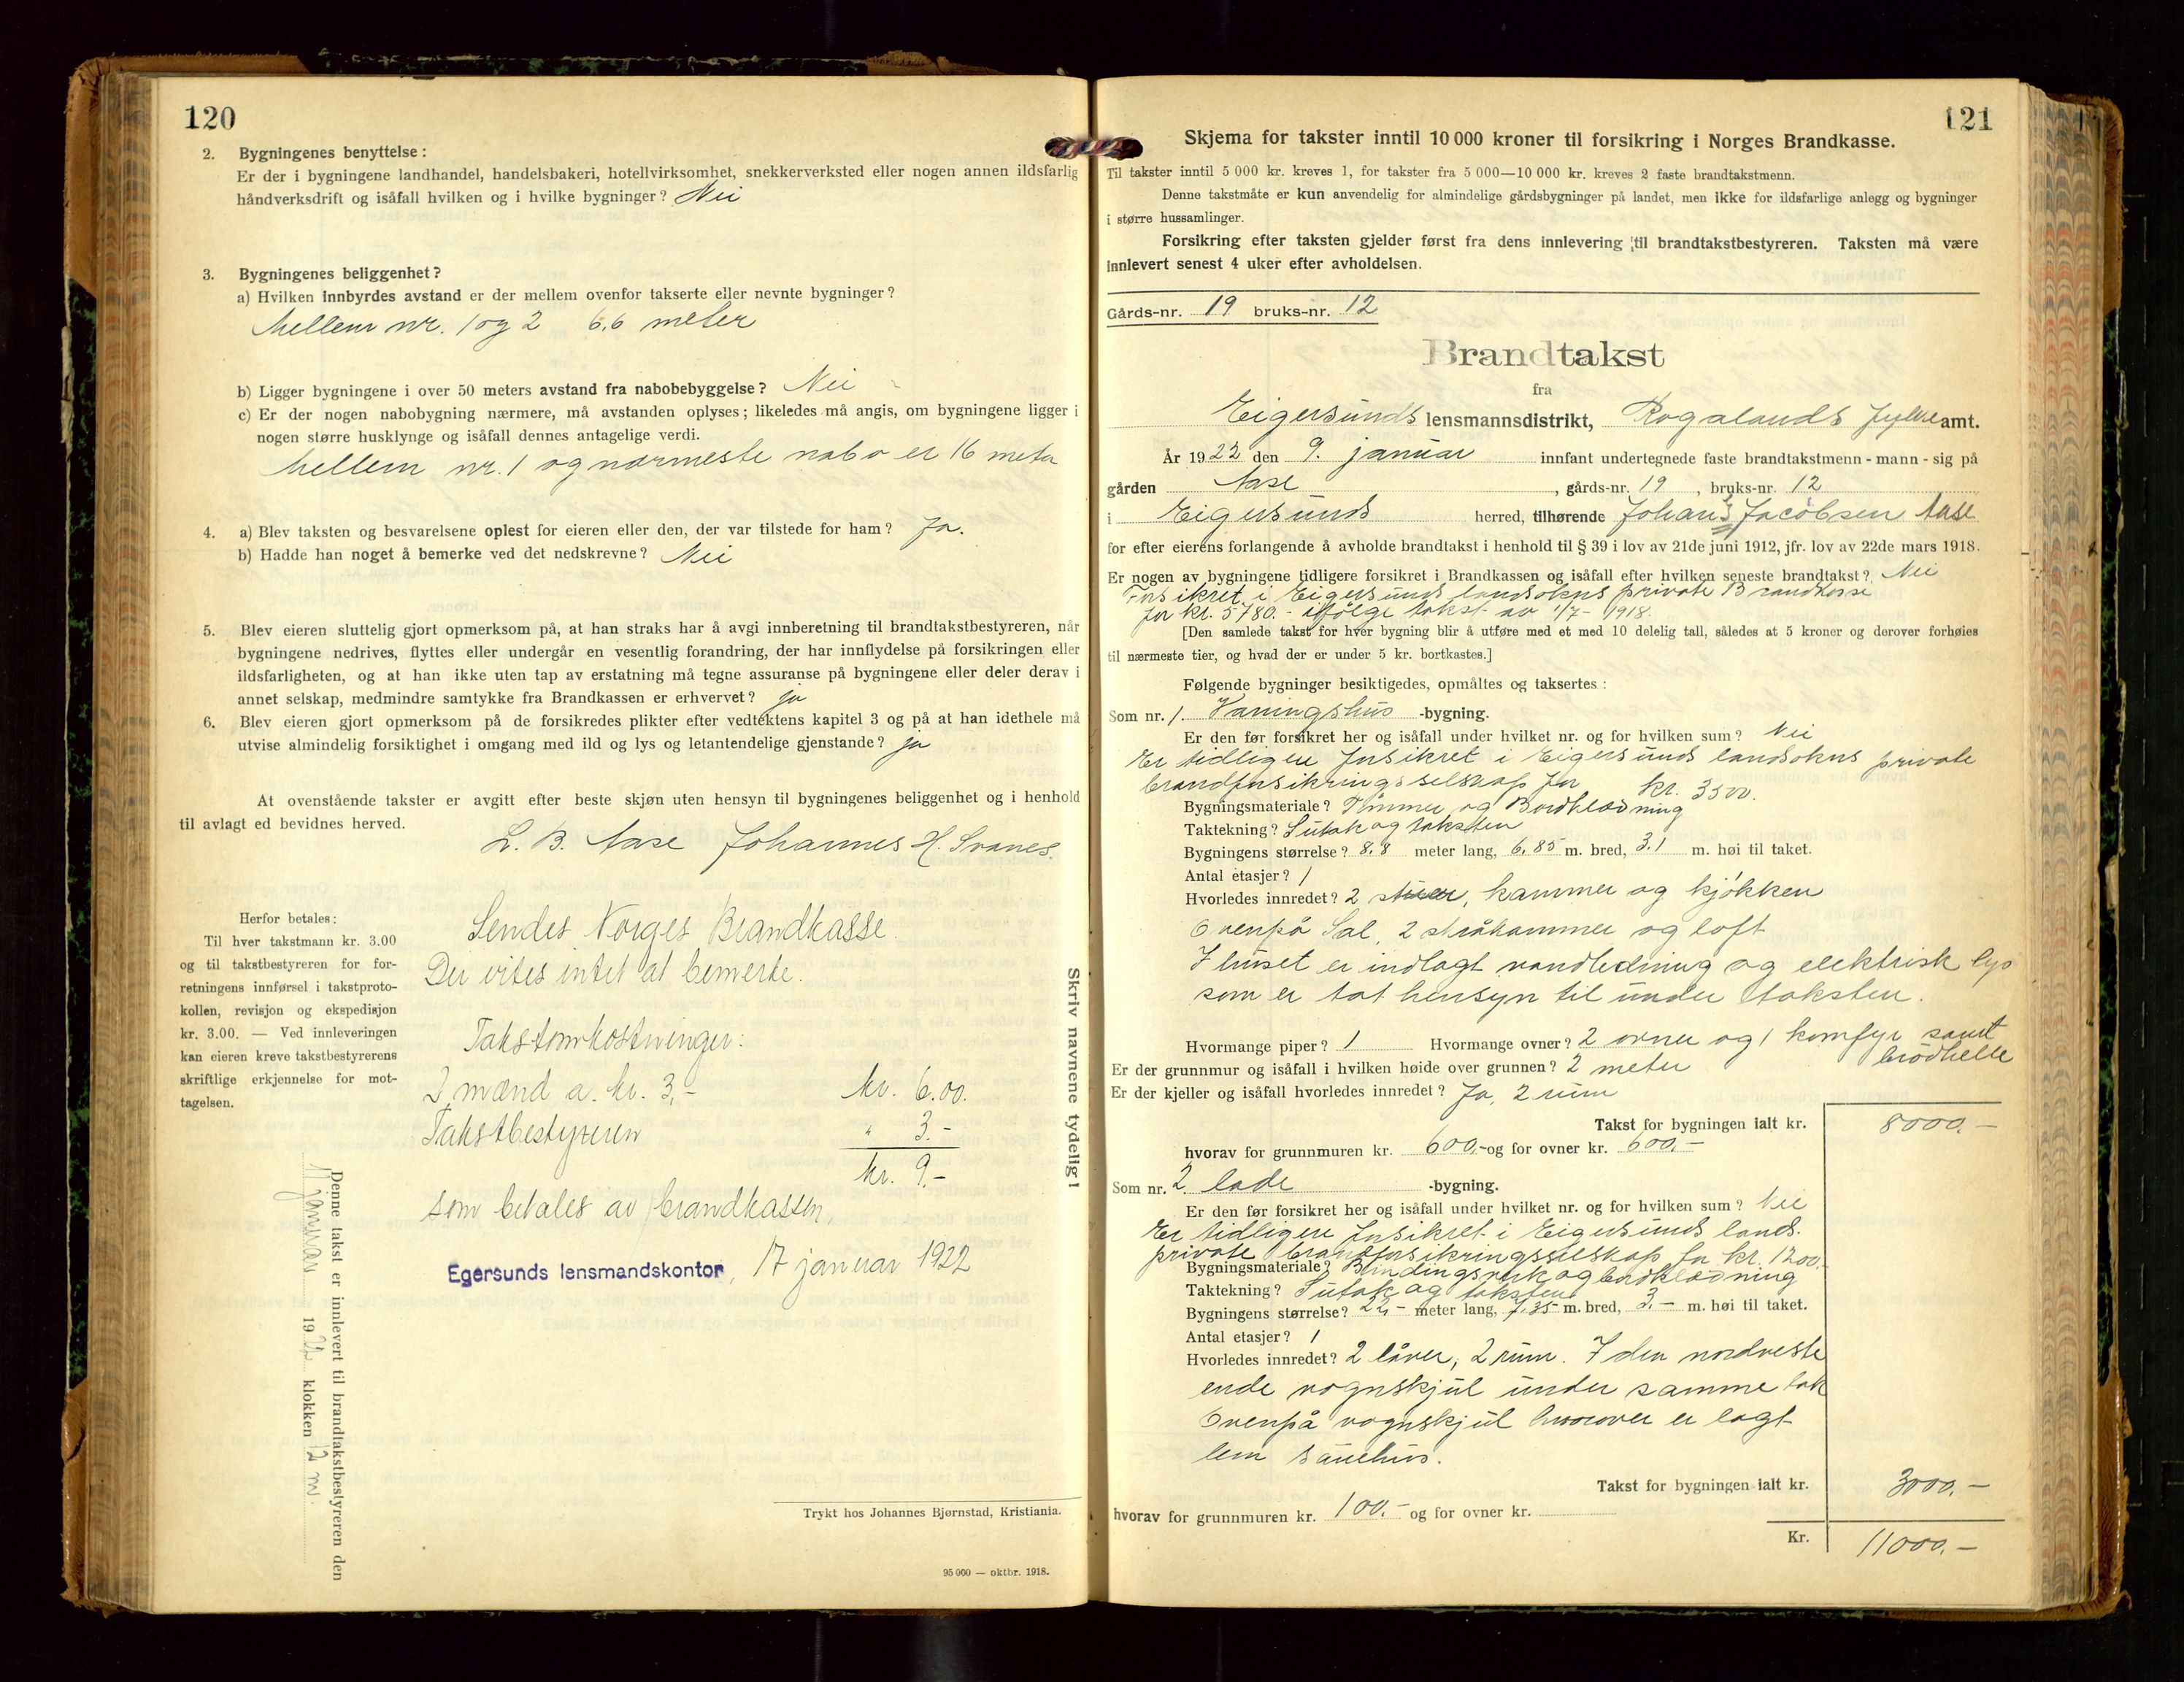 120
2. Bygningenes benyttelse:
Er der i bygningene landhandel, handelsbakeri, hotellvirksomhet, snekkerverksted eller nogen annen ildsfarlig
håndverksdrift og isåfall hvilken og i hvilke bygninger? Nei
3. Bygningenes beliggenhet?
a) Hvilken innbyrdes avstand er der mellem ovenfor takserte eller nevnte bygninger?
Mellem nr. 1 og 2 6,6 meter
b) Ligger bygningene i over 50 meters avstand fra nabobebyggelse? Nei
c) Er der nogen nabobygning nærmere, må avstanden oplyses; likeledes må angis, om bygningene ligger i
nogen større husklynge og isåfall dennes antagelige verdi.
Mellem nr. 1 og nærmeste nabo er 16 meter
4. a) Blev taksten og besvarelsene oplest for eieren eller den, der var tilstede for ham? Ja.
b) Hadde han noget å bemerke ved det nedskrevne? Nei
5. Blev eieren sluttelig gjort opmerksom på, at han straks har å avgi innberetning til brandtakstbestyreren, når
bygningene nedrives, flyttes eller undergår en vesentlig forandring, der har innflydelse på forsikringen eller
ildsfarligheten, og at han ikke uten tap av erstatning må tegne assuranse på bygningene eller deler derav i
annet selskap, medmindre samtykke fra Brandkassen er erhvervet? ja
6. Blev eieren gjort opmerksom på de forsikredes plikter efter vedtektens kapitel 3 og på at han idethele må
utvise almindelig forsiktighet i omgang med ild og lys og letantendelige gjenstande? ja
At ovenstående takster er avgitt efter beste skjøn uten hensyn til bygningenes beliggenhet og i henhold
til avlagt ed bevidnes herved.
L. B. Aase Johannes H. Svanes.
Herfor betales:
Til hver takstmann kr. 3.00
og til takstbestyreren for for-
retningens innførsel i takstproto-
kollen, revisjon og ekspedisjon
kr. 3.00. — Ved innleveringen
kan eieren kreve takstbestyrerens
skriftlige erkjennelse for mot-
tagelsen.
Sendes Norges Brandkasse.
Der vites intet at bemerke.
Takstomkostninger:
2 mænd a. kr. 3,- kr. 6.00.
Takstbestyreren " 3.-
kr. 9,-
som betales av brandkassen,
Egersunds lensmandskontor, 17 januar 1922
Denne takst er innlevert til brandtakstbestyreren den
11 januar 1922 klokken 12 m.
Skriv navnene tydelig!
Trykt hos Johannes Bjørnstad, Kristiania.
95 000 — oktbr. 1918.
121
Skjema for takster inntil 10 000 kroner til forsikring i Norges Brandkasse.
Til takster inntil 5 000 kr. kreves 1, for takster fra 5 000—10 000 kr. kreves 2 faste brandtakstmenn.
Denne takstmåte er kun anvendelig for almindelige gårdsbygninger på landet, men ikke for ildsfarlige anlegg og bygninger
i større hussamlinger.
Forsikring efter taksten gjelder først fra dens innlevering til brandtakstbestyreren. Taksten må være
innlevert senest 4 uker efter avholdelsen.
Gårds-nr. 19 bruks-nr. 12
Brandtakst
fra
Eigersunds lensmannsdistrikt, Rogalands fylke amt.
År 1922 den 9. januar innfant undertegnede faste brandtakstmenn - mann - sig på
gården Aase, gårds-nr. 19, bruks-nr. 12
i Eigersunds herred, tilhørende Johan S Jacobsen Aase
for efter eierens forlangende å avholde brandtakst i henhold til § 39 i lov av 21de juni 1912, jfr. lov av 22de mars 1918.
Er nogen av bygningene tidligere forsikret i Brandkassen og isåfall efter hvilken seneste brandtakst? Nei
Forsikret i Eigersunds landsokns private Brandkasse
for kr. 5780.- ifølge takst av 1/7- 1918.
[Den samlede takst for hver bygning blir å utføre med et med 10 delelig tall, således at 5 kroner og derover forhøies
til nærmeste tier, og hvad der er under 5 kr. bortkastes.]
Følgende bygninger besiktigedes, opmåltes og taksertes:
Som nr. 1. Vaningshus -bygning.
Er den før forsikret her og isåfall under hvilket nr. og for hvilken sum? Nei
Er tidligere forsikret i Eigersunds landsokns private
brandforsikringsselskap for kr. 3500.
Bygningsmateriale? Tømmer og Bordklædning
Taktekning? Sutak og taksten
Bygningens størrelse? 8,8 meter lang, 6,85 m. bred, 3,1 m. høi til taket.
Antal etasjer? 1
Hvorledes innredet? 2 stuer, kammer og kjøkken
Ovenpå Sal, 2 småkammer og loft
I huset er indlagt vandledning og elektrisk lys
som er tat hensyn til under taksten.
Hvormange piper? 1 Hvormange ovner? 2 ovner og 1 komfyr samt
brødhelle
Er der grunnmur og isåfall i hvilken høide over grunnen? 2 meter
Er der kjeller og isåfall hvorledes innredet? Ja, 2 rum
Takst for bygningen ialt kr. 8000.-
hvorav for grunnmuren kr. 600,- og for ovner kr. 600.-
Som nr. 2. lade -bygning.
Er den før forsikret her og isåfall under hvilket nr. og for hvilken sum? Nei
Er tidligere forsikret i Eigersunds lands.
private brandforsikringsselskap for kr. 1200.-
Bygningsmateriale? Bindingsverk og bordklædning
Taktekning? Sutak og taksten
Bygningens størrelse? 22,- meter lang, 7,35 m. bred, 3,- m. høi til taket.
Antal etasjer? 1
Hvorledes innredet? 2 låver, 2 rum. I den nordveste
ende vognskjul under samme tak
Ovenpå vognskjul hvorover er lagt
lem sauehus.
Takst for bygningen ialt kr. 3000.-
hvorav for grunnmuren kr. 100.- og for ovner kr.
Kr. 11000.-